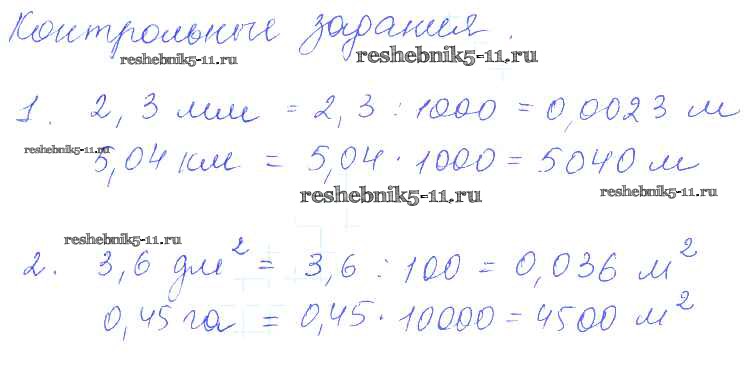 Контрольные задания.
reshebnik5-11.ru
reshebnik5-11.ru
1. 2,3 мм = 2,3 : 1000 = 0,0023 м
reshebnik5-11.ru
5,04 км = 5,04 · 1000 = 5040 м
reshebnik5-11.ru
reshebnik5-11.ru
reshebnik5-11.ru
2. 3,6 дм² = 3,6 : 100 = 0,036 м²
0,45 га = 0,45 · 10000 = 4500 м²